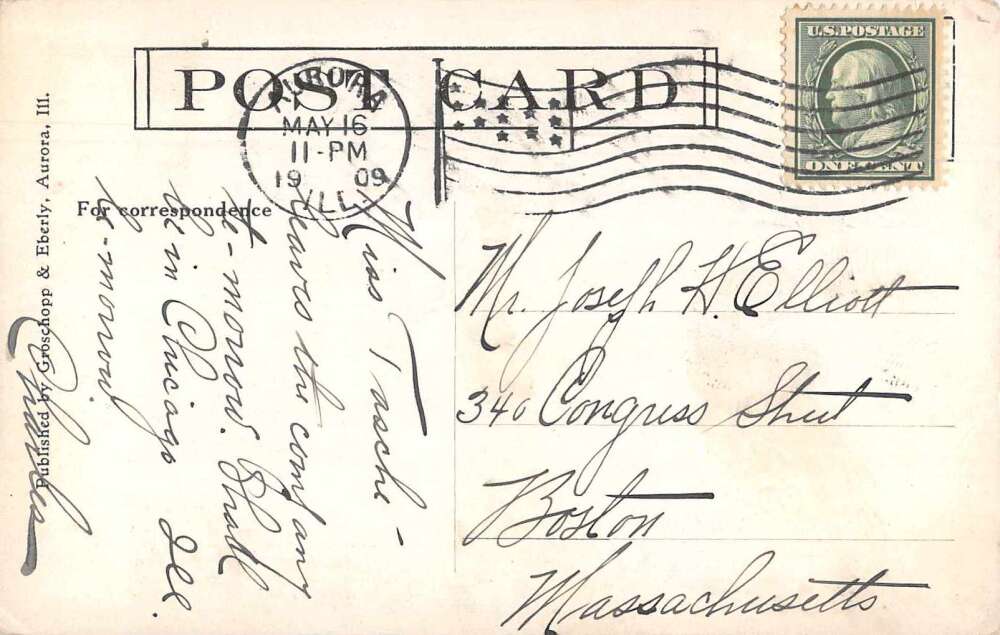 POST CARD
U.S. POSTAGE
ONE CENT
AURORA
MAY 16
11-PM
1909
ILL.
For correspondence
Published by Groschopp & Eberly, Aurora, Ill.
Miss Tasche -
leaves the company
to-morrow. Shall
be in Chicago Ill.
to-morrow
Charles
Mr. Joseph H. Elliott
340 Congress Street
Boston
Massachusetts.